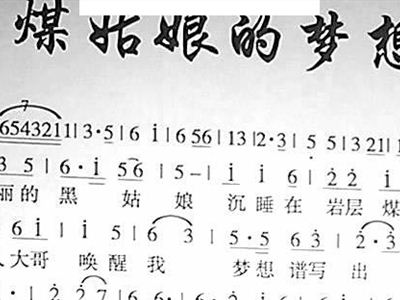 煤姑娘的梦想
7
6543211|3·5|6 i|6 56|13|2·3|5 5|3 21|1
3 5|6·i 56|5-|i i 6|2 2 i
丽的 黑 姑 娘 沉 睡 在 岩层 煤
6 i|i i 5|6 3|5·5 6 3|2·3
大哥 唤 醒 我 梦 想 谱写 出
2·2 7 6 6 5 6 1